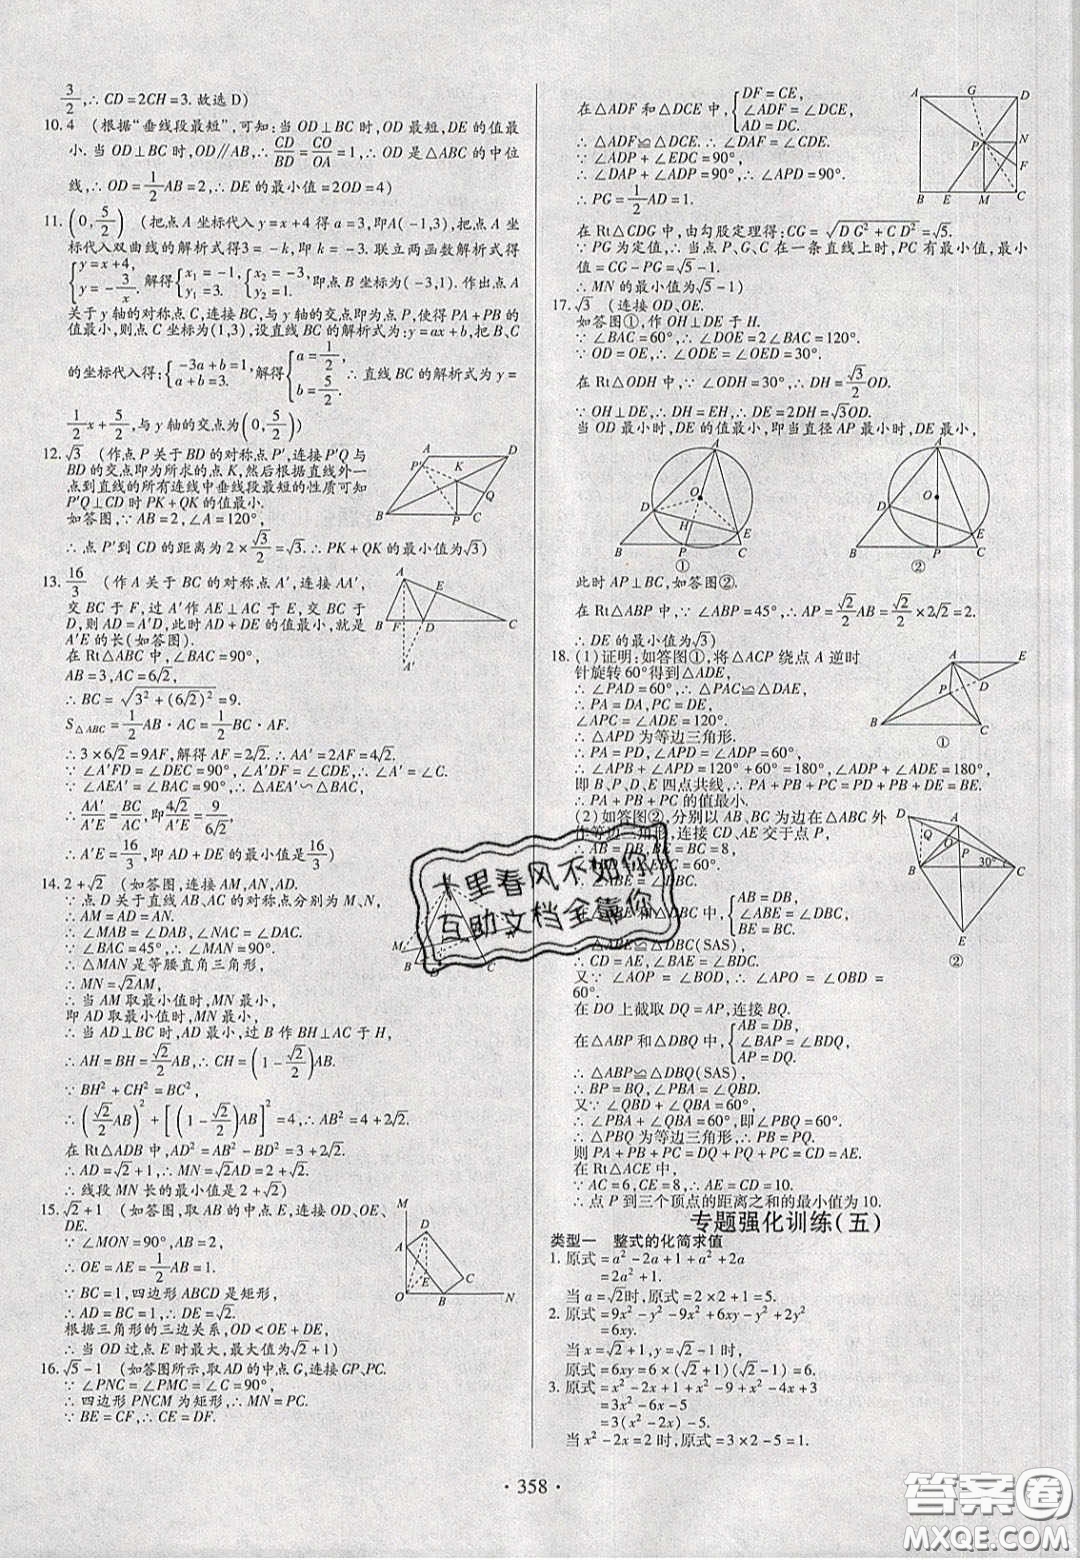 3/2,∴CD=2CH=3.故选D)
10.4 (根据“垂线段最短”,可知:当OD⊥BC时,OD最短,DE的值最
小.当OD⊥BC时,OD∥AB,∴CD/BD=CO/OA=1,∴OD是△ABC的中位
线,∴OD=1/2AB=2,∴DE的最小值=2OD=4)
11.(0,5/2) (把点A坐标代入y=x+4得a=3,即A(-1,3),把点A坐
标代入双曲线的解析式得3=-k,即k=-3.联立两函数解析式得
{y=x+4, y=-3/x. 解得{x₁=-1, y₁=3, {x₂=-3, y₂=1, 即点B坐标为(-3,1).作出点A
关于y轴的对称点C,连接BC,与y轴的交点即为点P,使得PA+PB的
值最小,则点C坐标为(1,3),设直线BC的解析式为:y=ax+b,把B、C
的坐标代入得:{-3a+b=1, a+b=3. 解得{a=1/2, b=5/2. ∴直线BC的解析式为y=
1/2x+5/2,与y轴的交点为(0,5/2))
12.√3 (作点P关于BD的对称点P′,连接P′Q与
BD的交点即为所求的点K,然后根据直线外一
点到直线的所有连线中垂线段最短的性质可知
P′Q⊥CD时PK+QK的值最小.
如答图,∵AB=2,∠A=120°,
∴点P′到CD的距离为2×√3/2=√3.∴PK+QK的最小值为√3)
13.16/3 (作A关于BC的对称点A′,连接AA′,
交BC于F,过A′作AE⊥AC于E,交BC于
D,则AD=A′D,此时AD+DE的值最小,就是
A′E的长(如答图).
在Rt△ABC中,∠BAC=90°,
AB=3,AC=6√2,
∴BC=√(3²+(6√2)²)=9.
S△ABC=1/2AB·AC=1/2BC·AF.
∴3×6√2=9AF,解得AF=2√2.∴AA′=2AF=4√2.
∵∠A′FD=∠DEC=90°,∠A′DF=∠CDE,∴∠A′=∠C.
∵∠AEA′=∠BAC=90°,∴△AEA′∽△BAC.
∴AA′/A′E=BC/AC,即4√2/A′E=9/6√2.
∴A′E=16/3,即AD+DE的最小值是16/3)
14.2+√2 (如答图,连接AM,AN,AD.
∵点D关于直线AB、AC的对称点分别为M、N,
∴∠MAB=∠DAB,∠NAC=∠DAC.
∵∠BAC=45°,∴∠MAN=90°.
∴△MAN是等腰直角三角形,
∴MN=√2AM,
∴当AM取最小值时,MN最小,
即AD取最小值时,MN最小.
∴当AD⊥BC时,AD最小,过B作BH⊥AC于H,
∴AH=BH=√2/2AB,∴CH=(1-√2/2)AB.
∵BH²+CH²=BC²,
∴(√2/2AB)²+[(1-√2/2)AB]²=4,∴AB²=4+2√2.
在Rt△ADB中,AD²=AB²-BD²=3+2√2.
∴AD=√2+1,∴MN=√2AD=2+√2.
∴线段MN长的最小值是2+√2)
15.√2+1 (如答图,取AB的中点E,连接OD、OE、
DE.
∵∠MON=90°,
∴OE=AE=1/2AB=1.
∵BC=1,四边形ABCD是矩形,
∴AD=BC=1,∴DE=√2.
根据三角形的三边关系,OD<OE+DE,
∴当OD过点E时最大,最大值为√2+1)
16.√5-1 (如答图所示,取AD的中点G,连接GP、PC.
∵∠PNC=∠PMC=∠C=90°,
∴四边形PNCM为矩形,∴MN=PC.
∵BE=CF,∴CE=DF.
在△ADF和△DCE中,{DF=CE, ∠ADF=∠DCE, AD=DC.
∴△ADF≌△DCE.∴∠DAF=∠CDE.
∵∠ADP+∠EDC=90°,
∴∠DAP+∠ADP=90°,∴∠APD=90°.
∴PG=1/2AD=1.
在Rt△CDG中,由勾股定理得:CG=√(DG²+CD²)=√5.
∵PG为定值,∴当点P、G、C在一条直线上时,PC有最小值,最小
值=CG-PG=√5-1.
∴MN的最小值为√5-1)
17.√3 (连接OD、OE.
如答图①,作OH⊥DE于H.
∵∠BAC=60°,∴∠DOE=2∠BAC=120°.
∵OD=OE,∴∠ODE=∠OED=30°.
在Rt△ODH中,∵∠ODH=30°,∴DH=√3/2OD.
∵OH⊥DE,∴DH=EH,∴DE=2DH=√3OD.
当OD最小时,DE的值最小,即当直径AP最小时,DE最小,
① ②
此时AP⊥BC,如答图②.
在Rt△ABP中,∵∠ABP=45°,∴AP=√2/2AB=√2/2×2√2=2.
∴DE的最小值为√3)
18.(1)证明:如答图①,将△ACP绕点A逆时
针旋转60°得到△ADE,
∴∠PAD=60°,∴△PAC≌△DAE,
∴PA=DA,PC=DE,
∠APC=∠ADE=120°.
∴△APD为等边三角形.
∴PA=PD,∠APD=∠ADP=60°.
∴∠APB+∠APD=120°+60°=180°,∠ADP+∠ADE=180°,
即B、P、D、E四点共线,∴PA+PB+PC=PD+PB+DE=BE.
∴PA+PB+PC的值最小.
(2)如答图②,分别以AB、BC为边在△ABC外
作等边三角形,连接CD、AE交于点P,
∴AB=DB,BE=BC=8,
∠ABD=∠EBC=60°.
∴∠ABE=∠DBC=90°.
在△ABE和△DBC中,{AB=DB, ∠ABE=∠DBC, BE=BC.
∴△ABE≌△DBC(SAS).
∴CD=AE,∠BAE=∠BDC.
又∵∠AOP=∠BOD,∴∠APO=∠OBD=
60°.
在DO上截取DQ=AP,连接BQ.
在△ABP和△DBQ中,{AB=DB, ∠BAP=∠BDQ, AP=DQ.
∴△ABP≌△DBQ(SAS).
∴BP=BQ,∠PBA=∠QBD.
又∵∠QBD+∠QBA=60°,
∴∠PBA+∠QBA=60°,即∠PBQ=60°.
∴△PBQ为等边三角形,∴PB=PQ.
则PA+PB+PC=DQ+PQ+PC=CD=AE.
在Rt△ACE中,
∵AC=6,CE=8,∴AE=CD=10.
∴点P到三个顶点的距离之和的最小值为10.
专题强化训练(五)
类型一 整式的化简求值
1.原式=a²-2a+1+a²+2a
=2a²+1.
当a=√2时,原式=2×2+1=5.
2.原式=9x²-y²-9x²+6xy-y²+2y²
=6xy.
当x=√2+1,y=√2-1时,
原式=6xy=6×(√2+1)(√2-1)=6.
3.原式=x²-2x+1+x²-9+x²-4x+3
=3x²-6x-5
=3(x²-2x)-5.
当x²-2x=2时,原式=3×2-5=1.
·358·
十里春风不如你
互助文档全靠你
答案圈
MXQE.COM